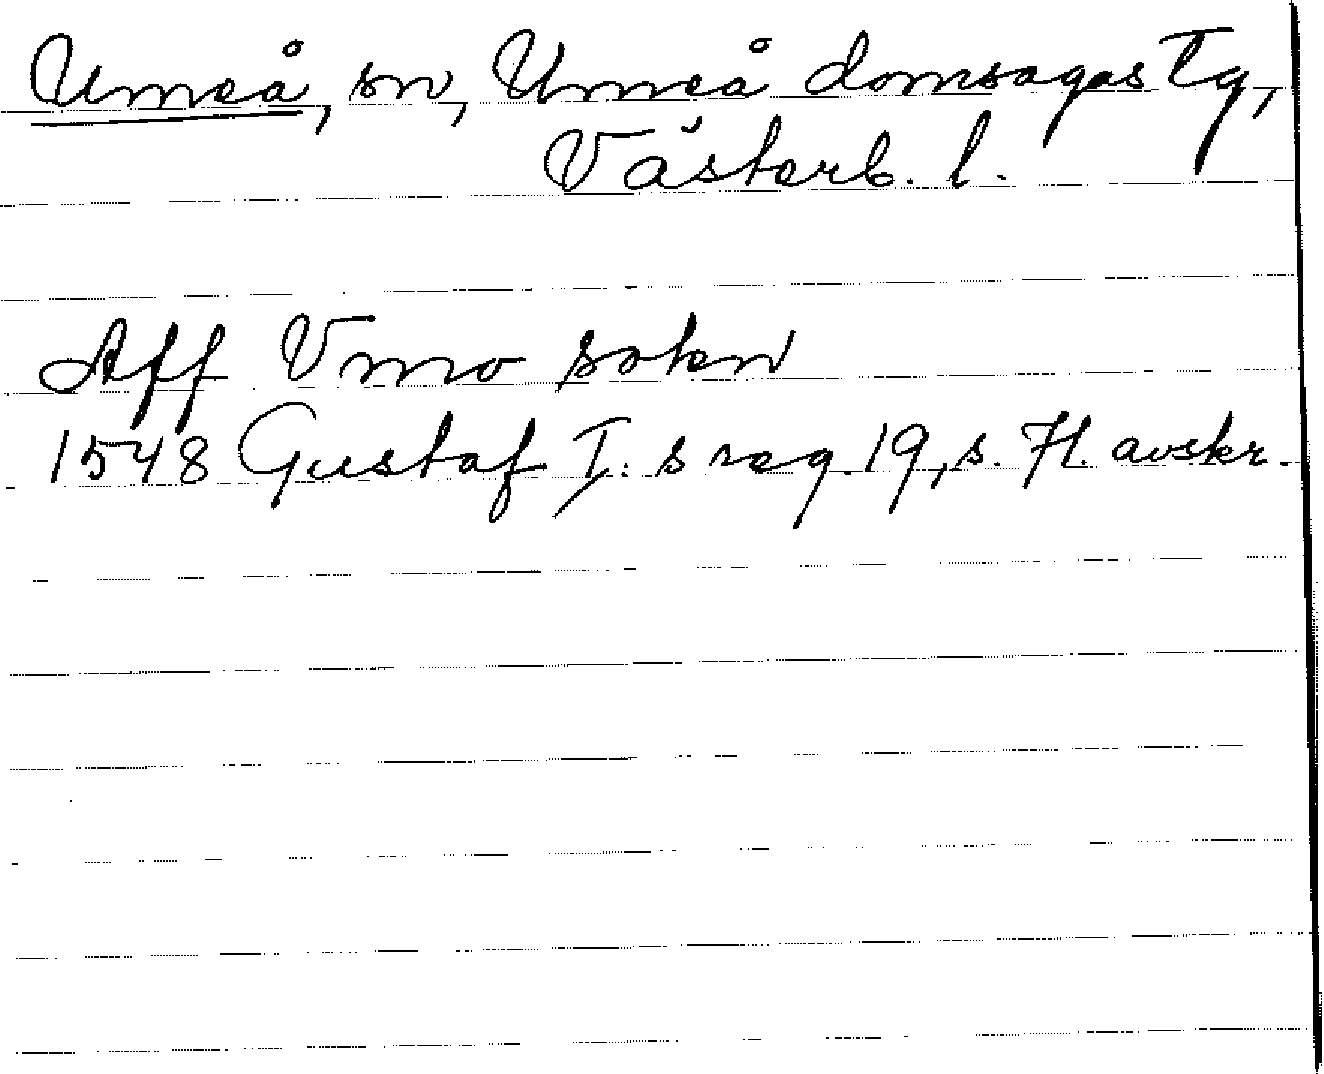 Umeå, sn, Umeå domsagas Tg,
Västerb. l.
Aff Vmo sokn
1548 Gustaf I:s reg. 19, s. 71. avskr.